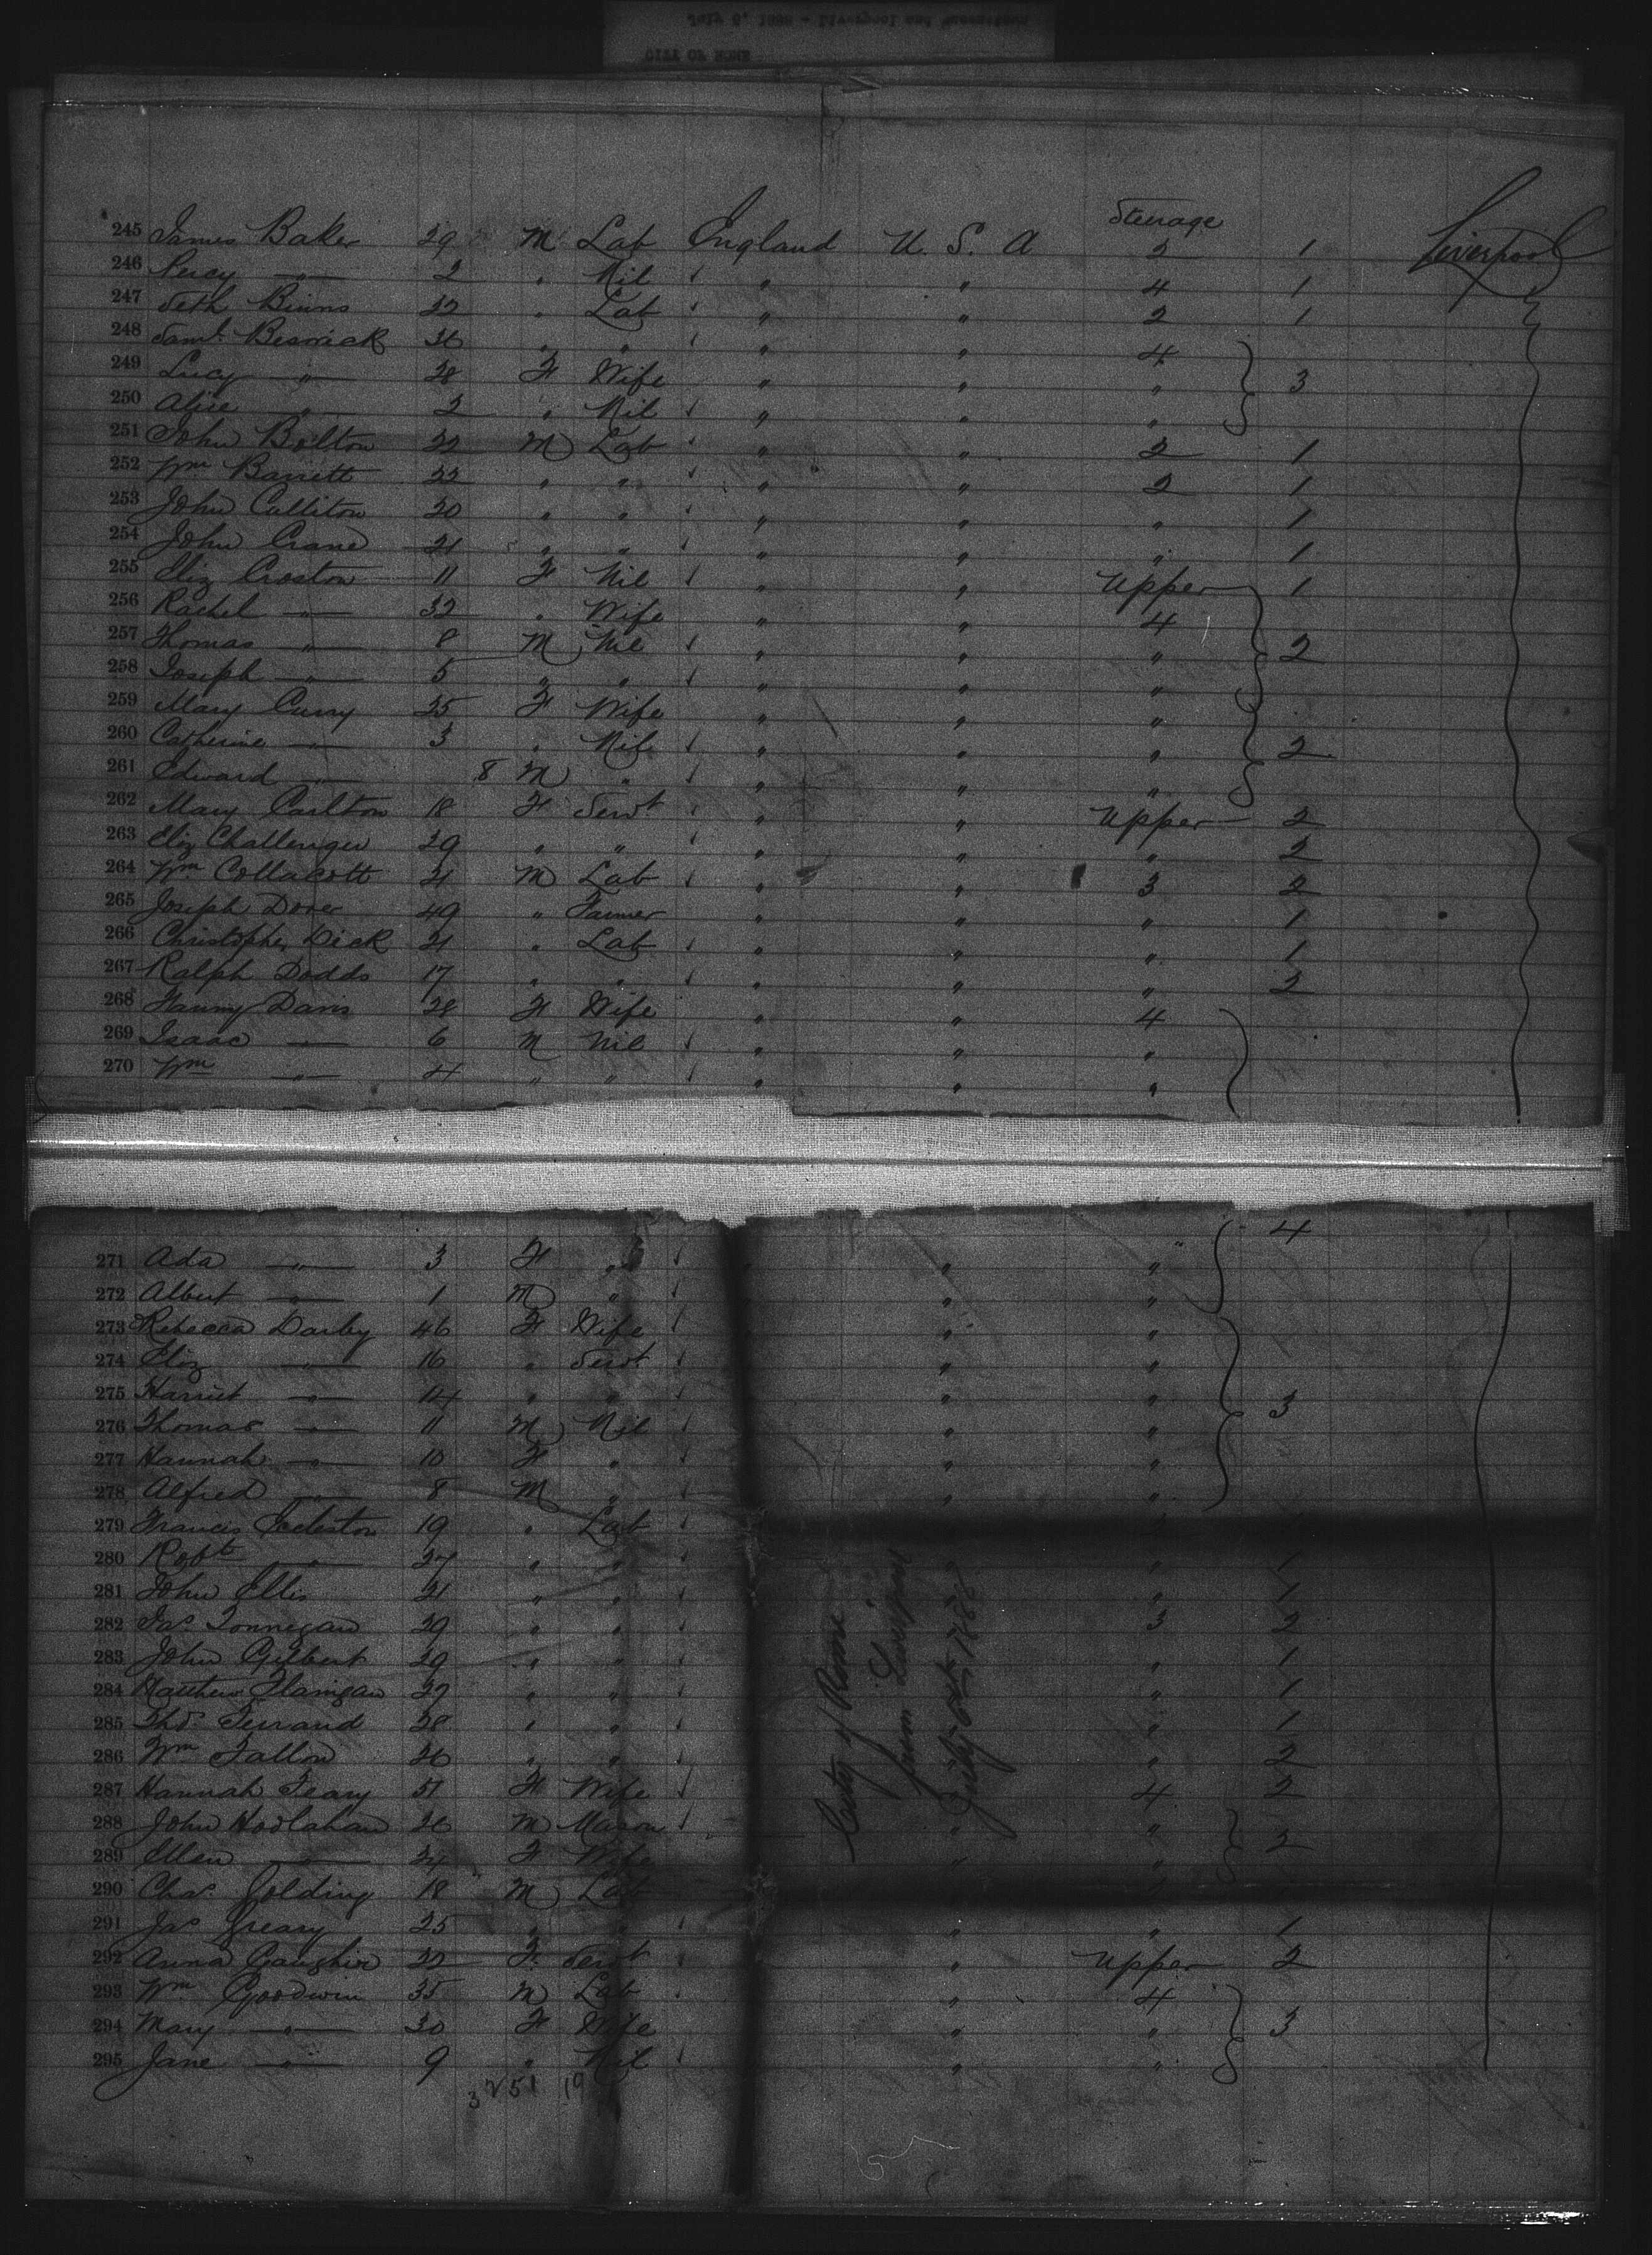 Steerage
245 James Baker 29 M Lab England U. S. A 2 1 Liverpool
246 Percy " 2 " Nil " " 4 1
247 Seth Binns 32 " Lab " " 2 1
248 Saml. Beswick 36 " " " " 4
249 Lucy " 28 F Wife " " " 3
250 Alice " 2 " Nil " " "
251 John Bolton 22 M Lab " " 2 1
252 Wm Barrett 22 " " " " 2 1
253 John Culliton 20 " " " " " 1
254 John Crane 21 " " " " " 1
255 Eliz Croston 11 F Nil " " Upper 1
256 Rachel " 32 " Wife " " 4
257 Thomas " 8 M Nil " " " 2
258 Joseph " 5 " " " " "
259 Mary Curry 25 F Wife " " "
260 Catherine " 3 " Nil " " " 2
261 Edward " 8 M " " " "
262 Mary Carlton 18 F Servt " " Upper 2
263 Eliz Challenger 29 " " " " " 2
264 Wm Collacott 21 M Lab " " 3 2
265 Joseph Dover 49 " Farmer " " " 1
266 Christopher Dick 21 " Lab " " " 1
267 Ralph Dodds 17 " " " " " 2
268 Fanny Davis 28 F Wife " " 4
269 Isaac " 6 M Nil " " "
270 Wm " 4 " " " " "
" 4
271 Ada " 3 F " " "
272 Albert " 1 M " " "
273 Rebecca Darby 46 F Wife " "
274 Eliz " 16 " Servt " "
275 Harriet " 14 " " " " 3
276 Thomas " 11 M Nil " "
277 Hannah " 10 F " " "
278 Alfred " 8 M " " "
279 Francis Eccleston 19 " Lab
280 Robt " 27 " " " 1
281 John Ellis 21 " " " 1
282 Jas. 29 " " 3 2
283 John Gilbert 29 " " " 1
284 Matthew Flanigan 27 " " " 1
285 Thos. Ferrand 28 " " " 1
286 Wm Fallon 26 " " " 2
287 Hannah Feary 51 F Wife 4 2
288 John Hoolahan 26 M Mason " " 2
289 Ellen " 24 F Wife " "
290 Chas. Golding 18 M Lab
291 Jas Greary 25 " " " " 1
292 Anna 22 F Servt " Upper 2
293 Wm Goodwin 35 M Lab " 4
294 Mary " 30 F Wife " " 3
295 Jane " 9 " Nil " "
3 251 19
City of Rome
from Liverpool
July 1888